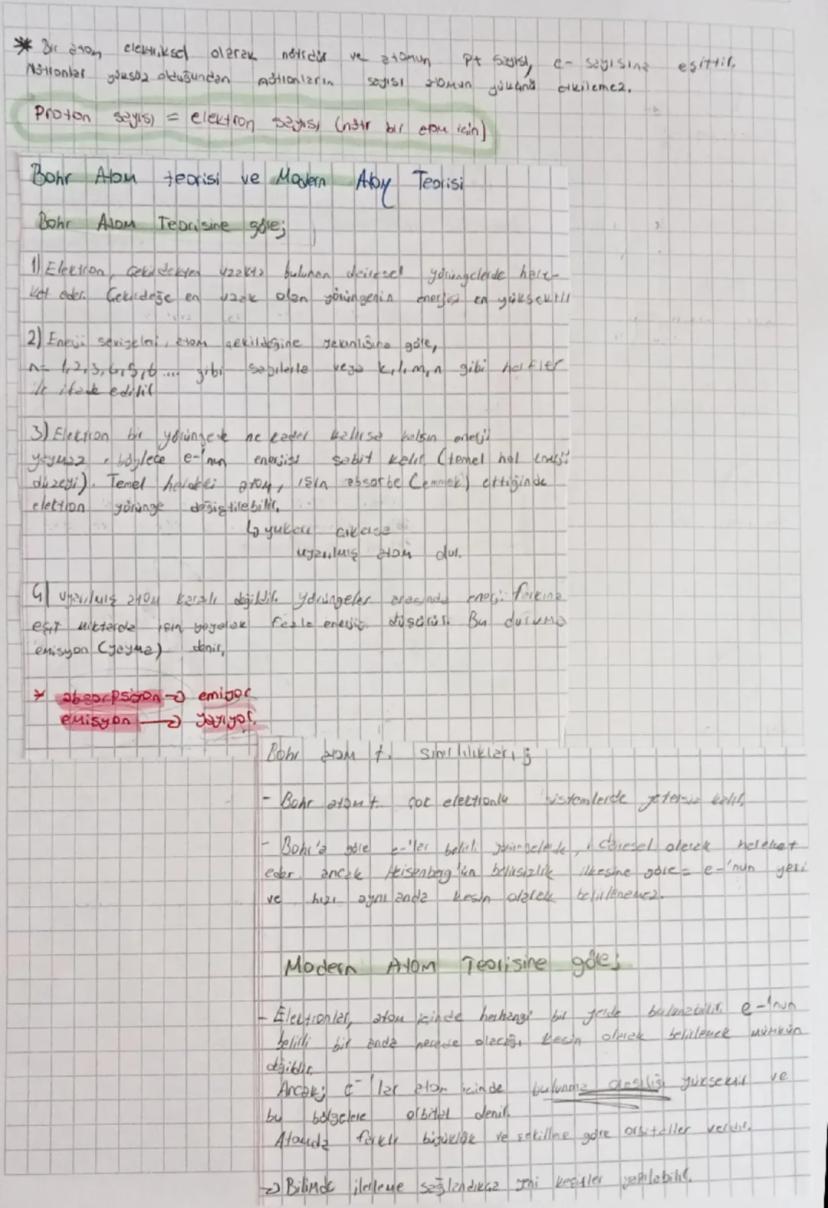 * Bir atom elektriksel olarak nötrdür ve atomun p+ sayısı, e- sayısına eşittir.
Nötronlar yüksüz olduğundan nötronların sayısı atomun yükünü etkilemez.
Proton sayısı = elektron sayısı (nötr bir atom için)
Bohr Atom teorisi ve Modern Atom Teorisi
Bohr Atom Teorisine göre;
1) Elektron, çekirdekten uzakta bulunan dairesel yörüngelerde hare-
ket eder. Çekirdeğe en uzak olan yörüngenin enerjisi en yüksektir
2) Enerji seviyeleri, atom çekirdeğine yakınlığına göre,
n= 1,2,3,4,5,6 .... gibi sayılarla veya k,l,m,n gibi harfler
ile ifade edilir
3) Elektron bir yörüngede ne kadar kalırsa kalsın enerji
yaymaz, böylece e-'nun enerjisi sabit kalır (temel hal enerji
düzeyi). Temel haldeki atom, ışın absorbe (emmek) ettiğinde
elektron yörünge değiştirebilir.
↳ yukarı çıkarsa
uyarılmış atom olur.
4) Uyarılmış atom kararlı değildir. Yörüngeler arasında enerji farkına
eşit miktarda ışın yayarak fazla enerjiyi düşürür. Bu duruma
emisyon (yayma) denir.
* absorpsiyon → emiyor
emisyon → yayıyor.
Bohr atom t. sınırlılıkları;
- Bohr atom t. çok elektronlu sistemlerde yetersiz kalır.
- Bohr'a göre e-'ler belirli yörüngelerde, dairesel olarak hareket
eder ancak Heisenberg'ün belirsizlik ilkesine göre = e-'nun yeri
ve hızı aynı anda kesin olarak belirlenemez.
Modern Atom Teorisine göre;
- Elektronlar, atom içinde herhangi bir yerde bulunabilir. e-'nun
belirli bir anda nerede olacağı kesin olarak belirlemek mümkün
değildir.
Ancak; e-'lar atom içinde bulunma olasılığı yüksektir ve
bu bölgelere orbital denir.
Atomda farklı büyüklük ve şekilline göre orbitaller vardır.
→ Bilimde ilerleme sağlandıkça yeni keşifler yapılabilir.